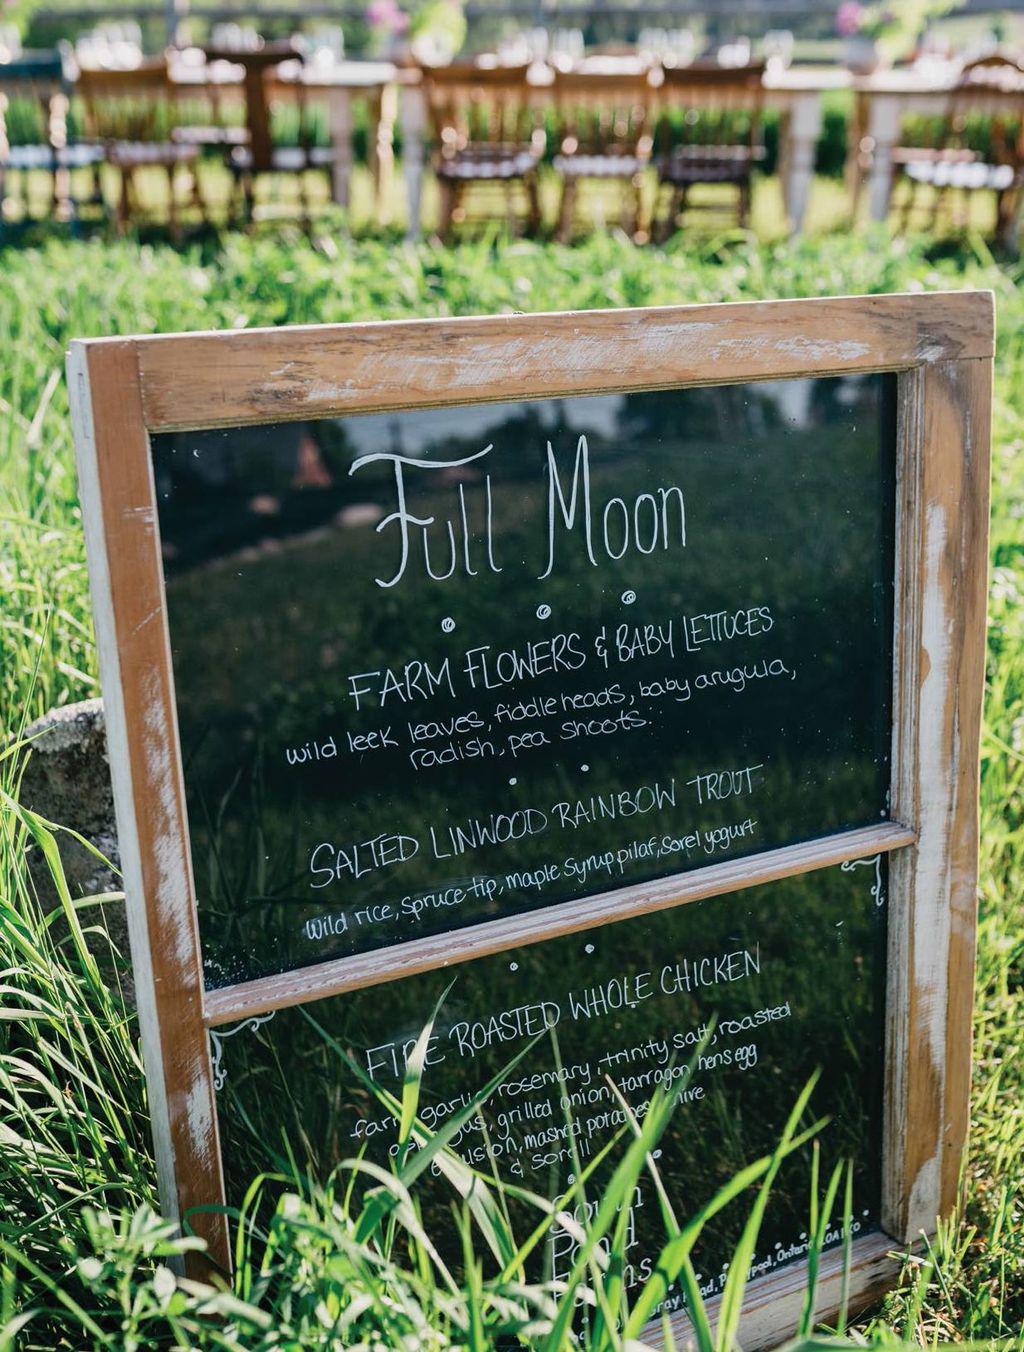 Full Moon
FARM FLOWERS & BABY LETTUCES
wild leek leaves, fiddleheads, baby arugula,
radish, pea shoots.
SALTED LINWOOD RAINBOW TROUT
Wild rice, spruce tip, maple syrup pilaf, sorel yogurt
FIRE ROASTED WHOLE CHICKEN
farm garlic, rosemary, trinity salt, roasted
grilled onion, tarragon hens egg
mashed potatoes
& sorell
South
Pond
Farms
Ontario